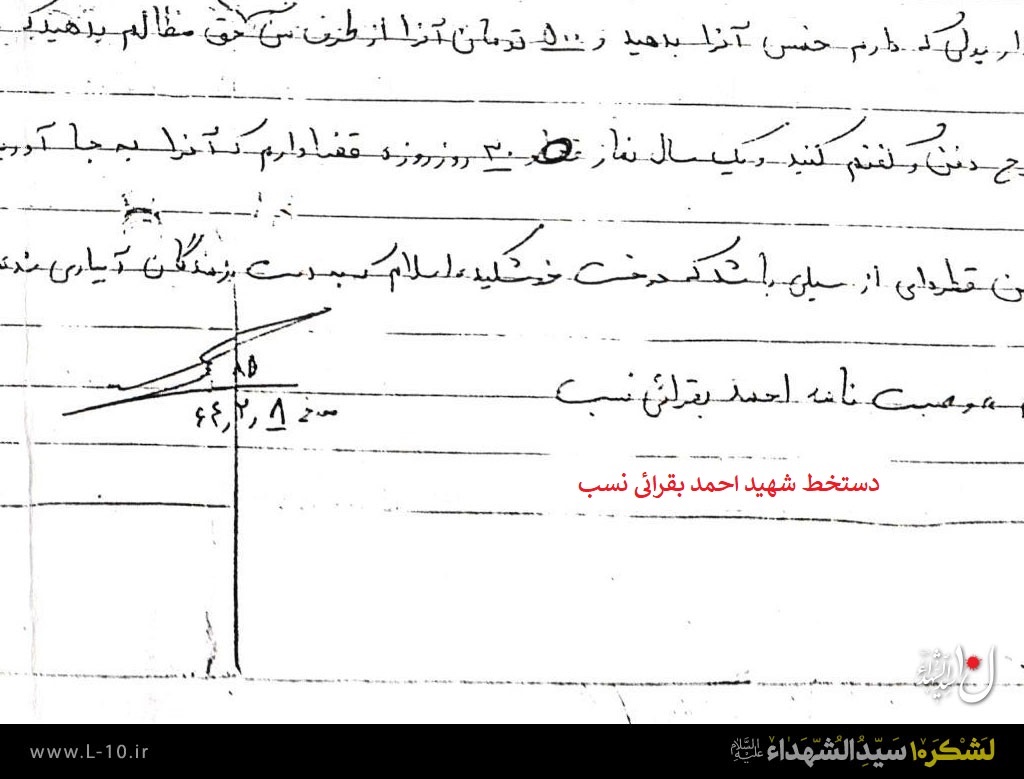 پولی که دارم خمس آنرا بدهید و ۵۰۰ تومان آنرا از طرف من حق مظالم بدهید
دفن و کفنم کنید و یک سال نماز و ۳۰ روز روزه قضا دارم که آنرا به جا آورید
قطره‌ای از سیلی باشد که درخت خوشکیده اسلام که بدست رزمندگان آبیاری
وصیت نامه احمد بقرائی نسب
۶۴,۲,۸
دستخط شهید احمد بقرائی نسب
لشکر۱۰ سیدالشهداء علیه‌السلام
www.L-10.ir